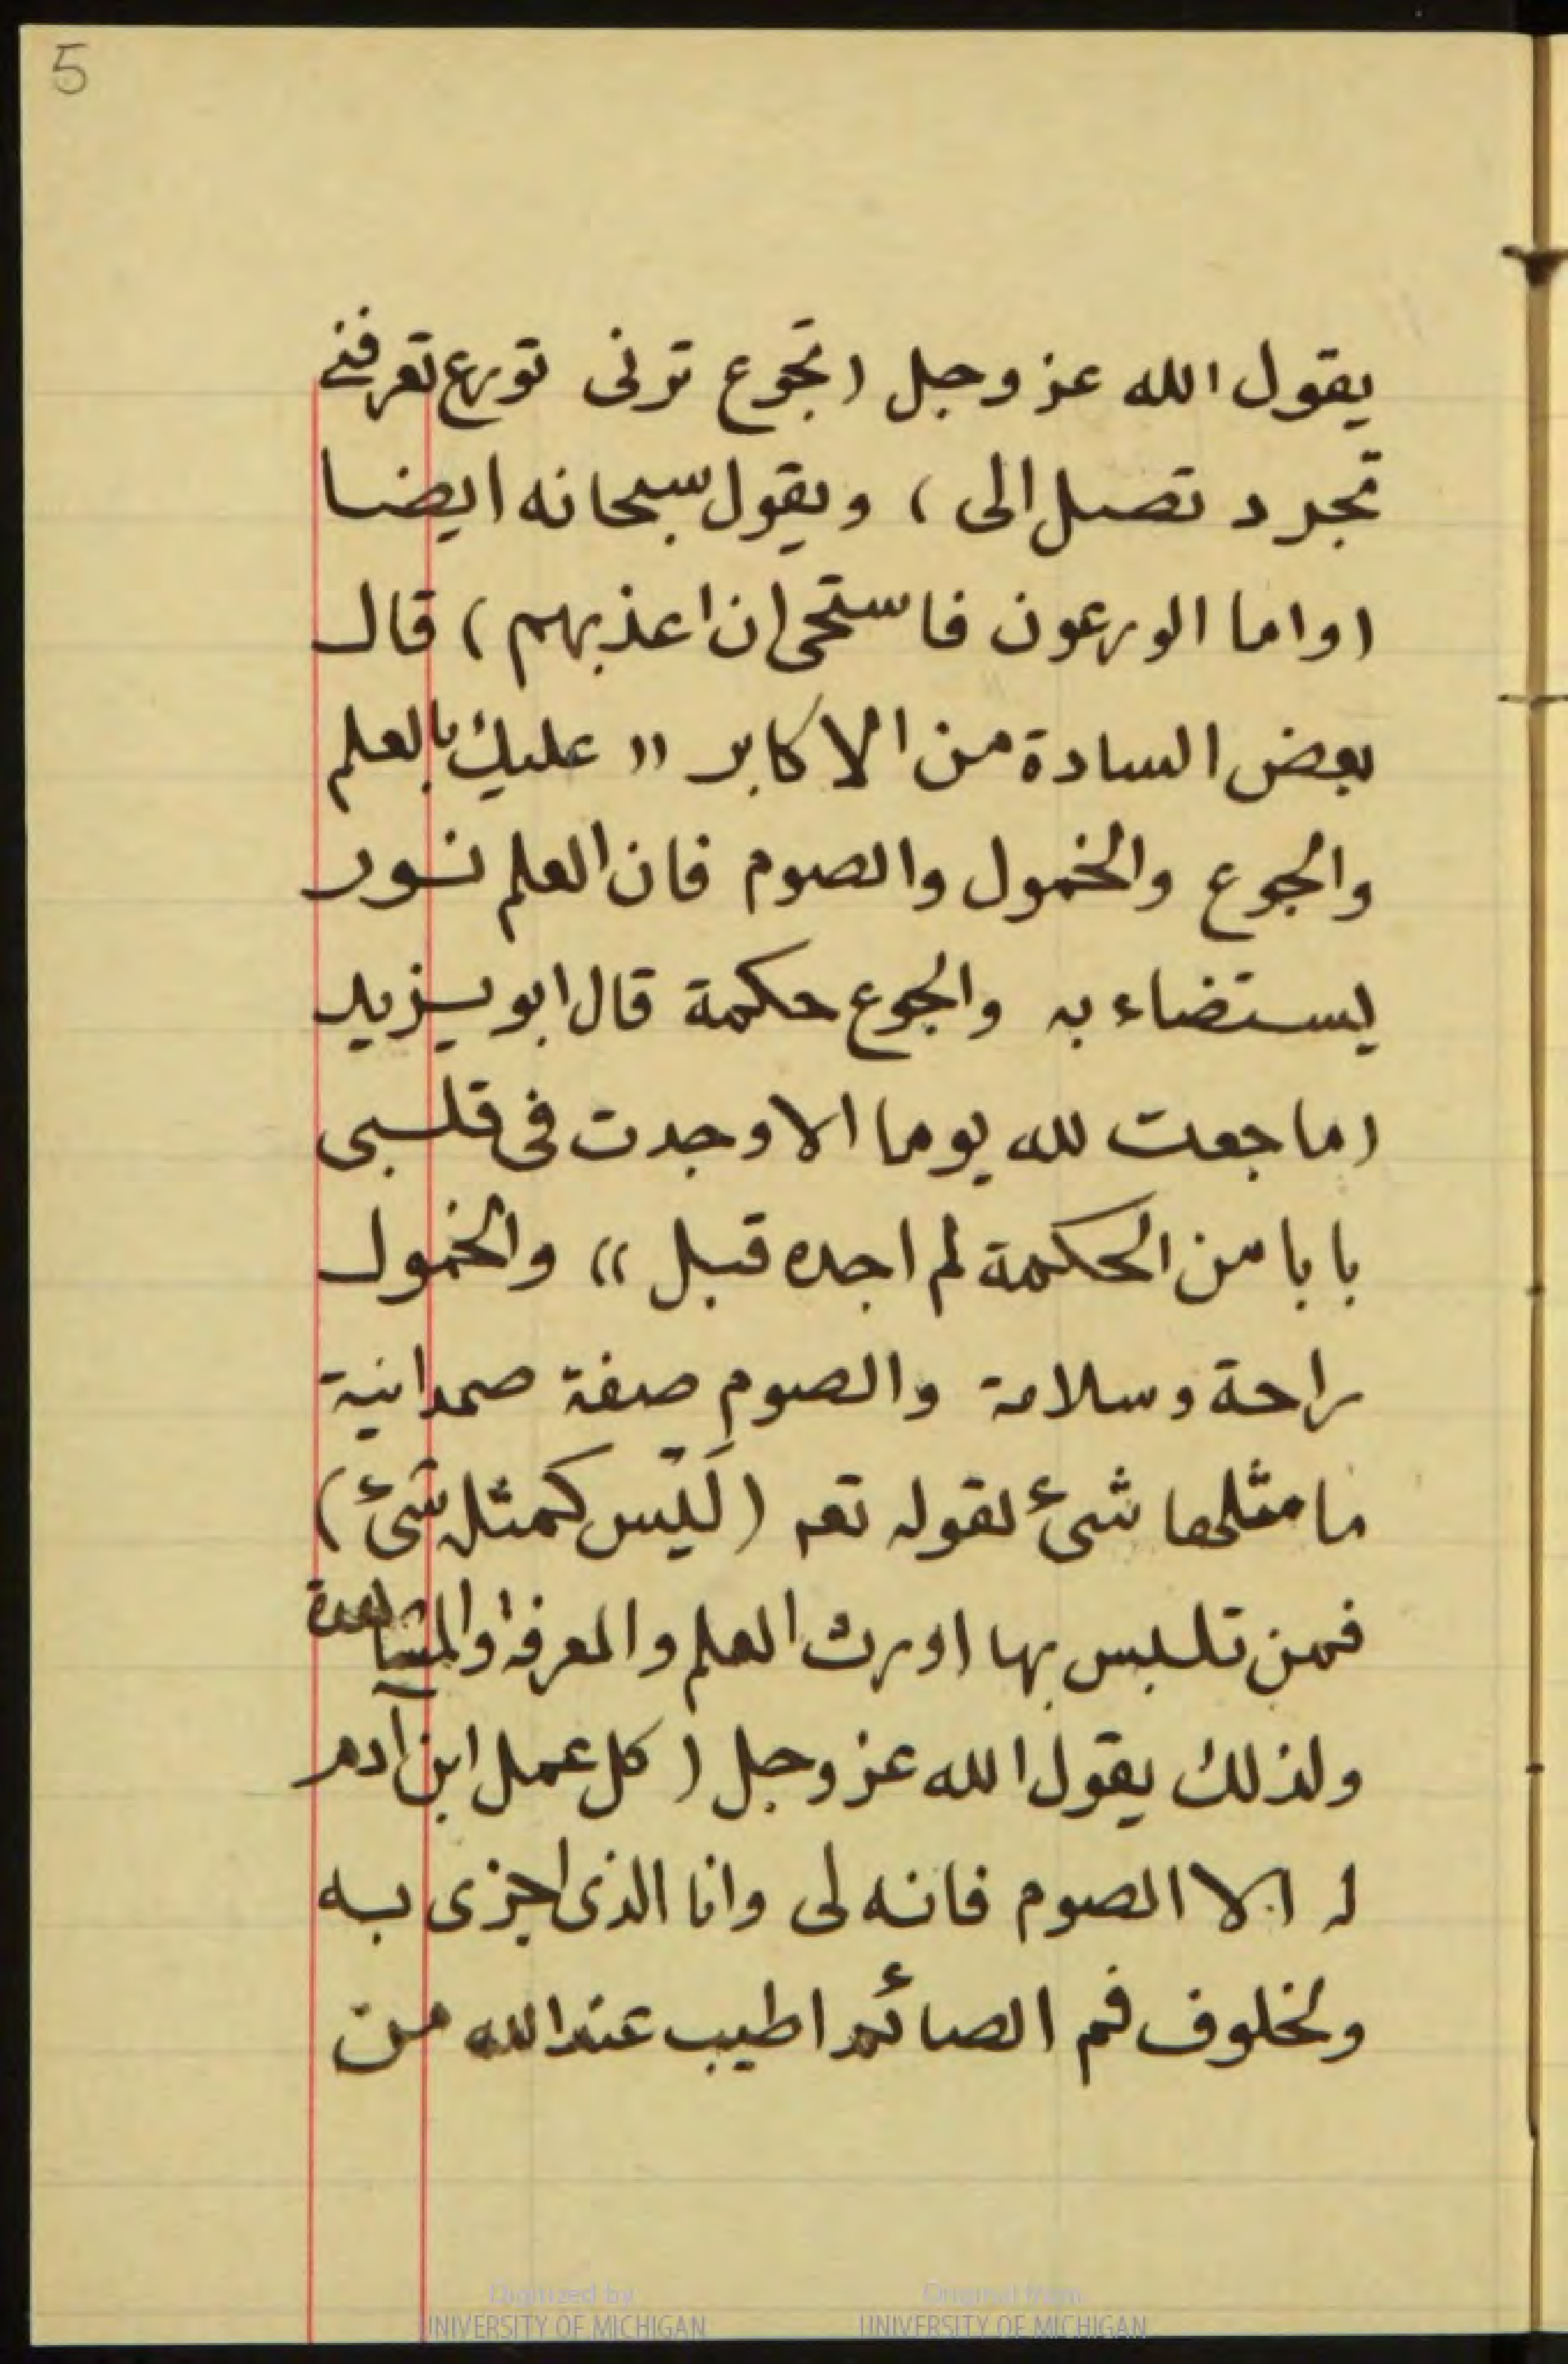 5
يقول الله عز وجل (تجوع ترنى تورع تعرفني
تجرد تصل الى) ويقول سبحانه ايضا
(واما الورعون فاستحى ان اعذبهم) قال
بعض السادة من الاكابر "عليك بالعلم
والجوع والخمول والصوم فان العلم نور
يستضاء به والجوع حكمة قال ابو يزيد
(ما جعت لله يوما الا وجدت فى قلبى
بابا من الحكمة لم اجده قبل" والخمول
راحة وسلامة والصوم صفة صمدانية
ما مثلها شئ لقوله تعـ (لَيْس كمثله شئ)
فمن تلبس بها اورث العلم والمعرفة والمشاهدة
ولذلك يقول الله عز وجل (كل عمل ابن آدم
له الا الصوم فانه لى وانا الذى اجزى به
ولخلوف فم الصائم اطيب عند الله من
Digitized by
UNIVERSITY OF MICHIGAN
Original from
UNIVERSITY OF MICHIGAN